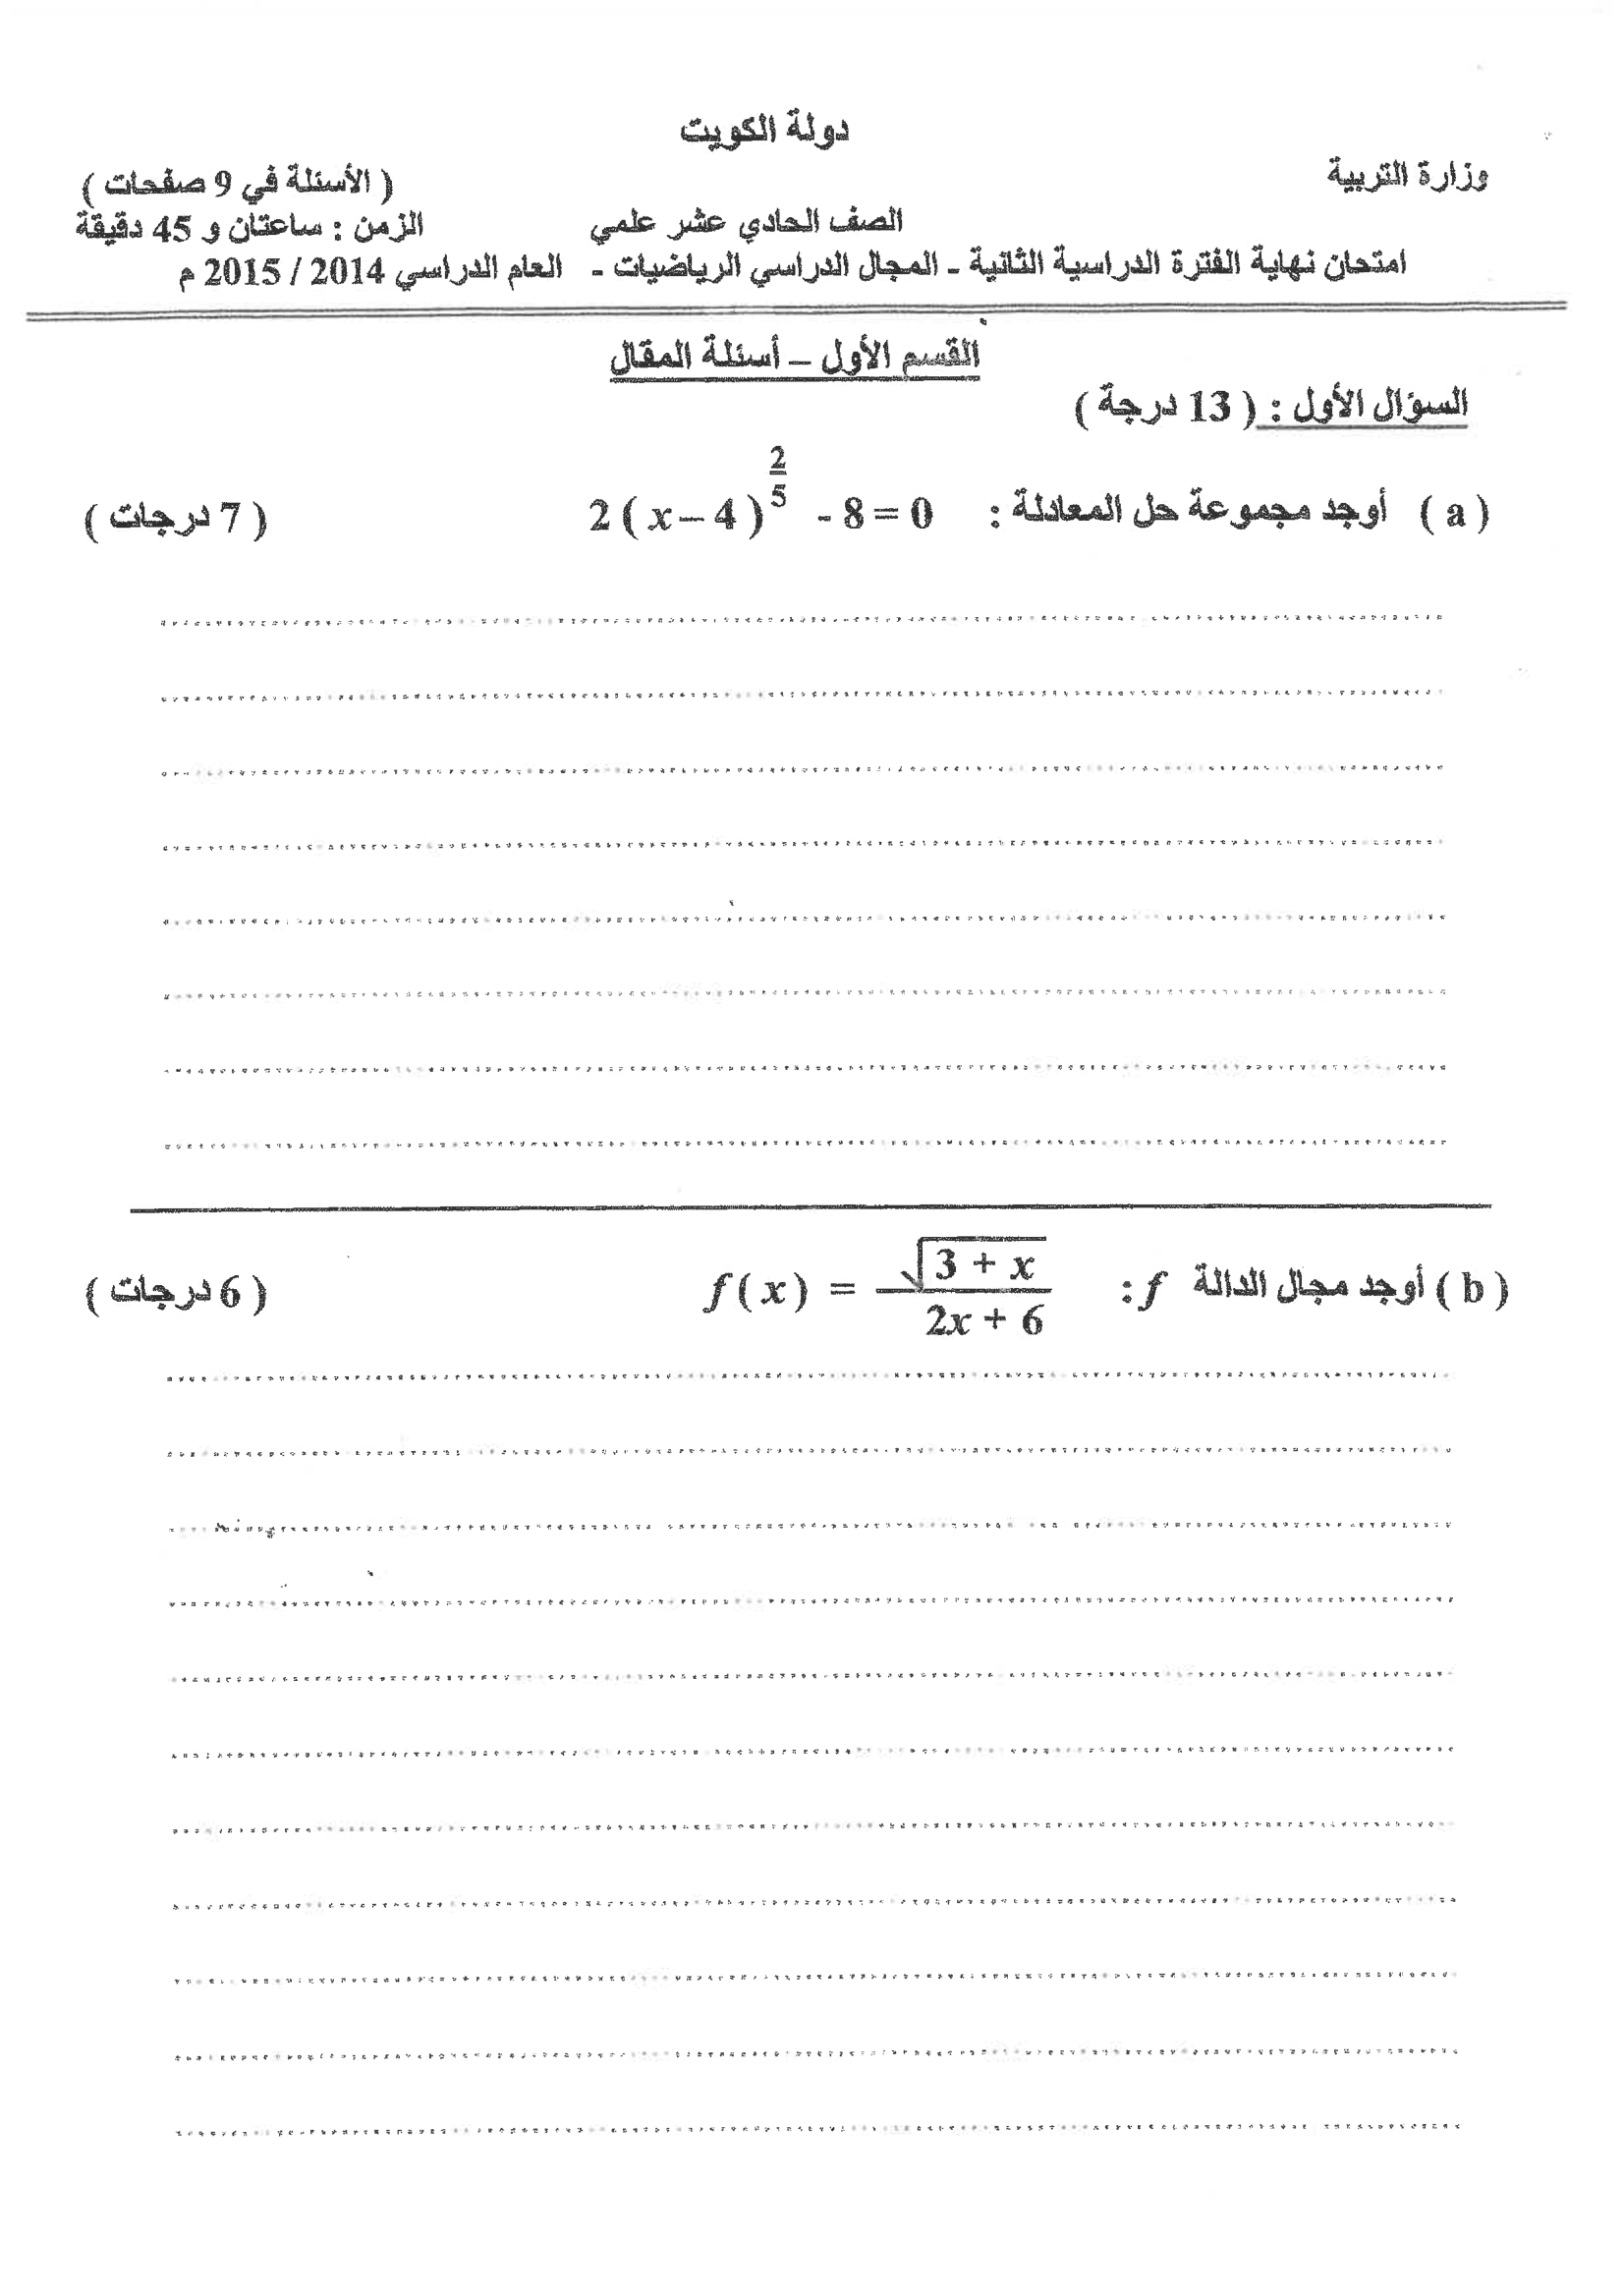 دولة الكويت
وزارة التربية
( الأسئلة في 9 صفحات )
الصف الحادي عشر علمي
الزمن : ساعتان و 45 دقيقة
امتحان نهاية الفترة الدراسية الثانية - المجال الدراسي الرياضيات - العام الدراسي 2014 / 2015 م
القسم الأول – أسئلة المقال
السؤال الأول : ( 13 درجة )
( a ) أوجد مجموعة حل المعادلة : 2 ( x – 4 )^(2/5) - 8 = 0 ( 7 درجات )
( b ) أوجد مجال الدالة f : f ( x ) = √(3 + x) / (2x + 6) ( 6 درجات )